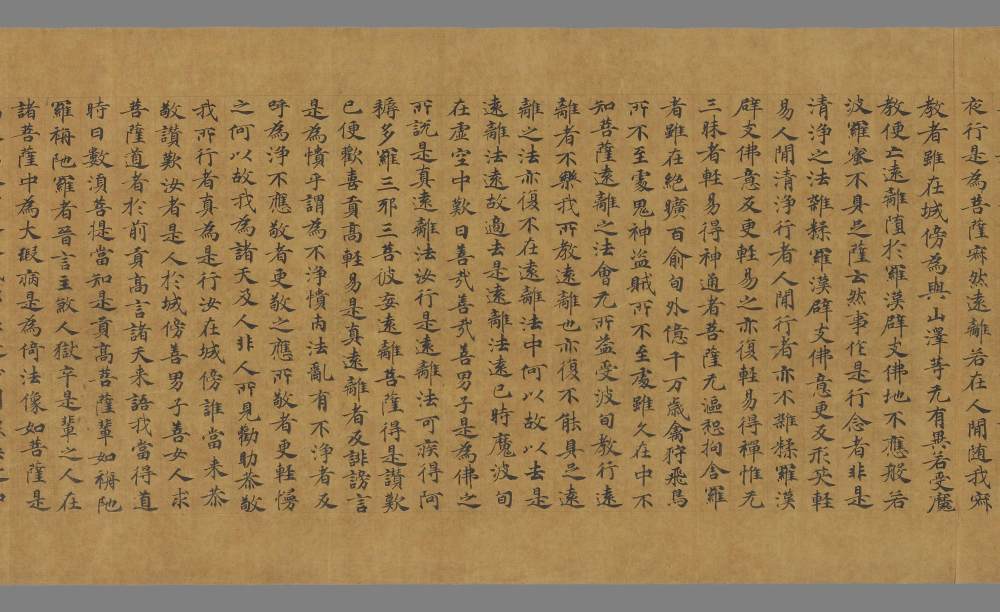 夜行是為菩薩寂然遠離若在人間随我寂
教者雖在城傍為與山澤等无有異若受魔
教便亡遠離堕於羅漢辟支佛地不應般若
波羅蜜不具足薩云然事作是行念者非是
清淨之法雜糅羅漢辟支佛意更反形笑輕
易人間清淨行者人間行者亦不雜糅羅漢
辟支佛意反更輕易之亦復輕易得禪惟无
三昧者輕易得神通者菩薩无漚惒拘舍羅
者雖在絶曠百俞旬外億千万歲禽狩飛鳥
所不至處鬼神盜賊所不至處雖久在中不
知菩薩遠離之法會无所益受波旬教行遠
離者不樂我所教遠離也亦復不能具足遠
離之法亦復不在遠離法中何以故以去是
遠離法遠故適去是遠離法遠已時魔波旬
在虛空中歎曰善哉善哉善男子是為佛之
所說是真遠離法汝行是遠離法可疾得阿
耨多羅三耶三菩彼妄遠離菩薩得是讚歎
已便歡喜貢高輕易是真遠離者反誹謗言
是為憒乎謂為不淨憒內法亂有不淨者反
呼為淨不應敬者更敬之應所敬者更輕慢
之何以故我為諸天及人非人所見勸助恭敬
我所行者真為是行汝在城傍誰當来恭
敬讚歎汝者是人於城傍善男子善女人求
菩薩道者於前貢高言諸天来語我當得道
時日數湏菩提當知是貢高菩薩輩如旃陁
羅旃陁羅者晉言主煞人獄卒是輩之人在
諸菩薩中為大瑕病是為倚法像如菩薩是